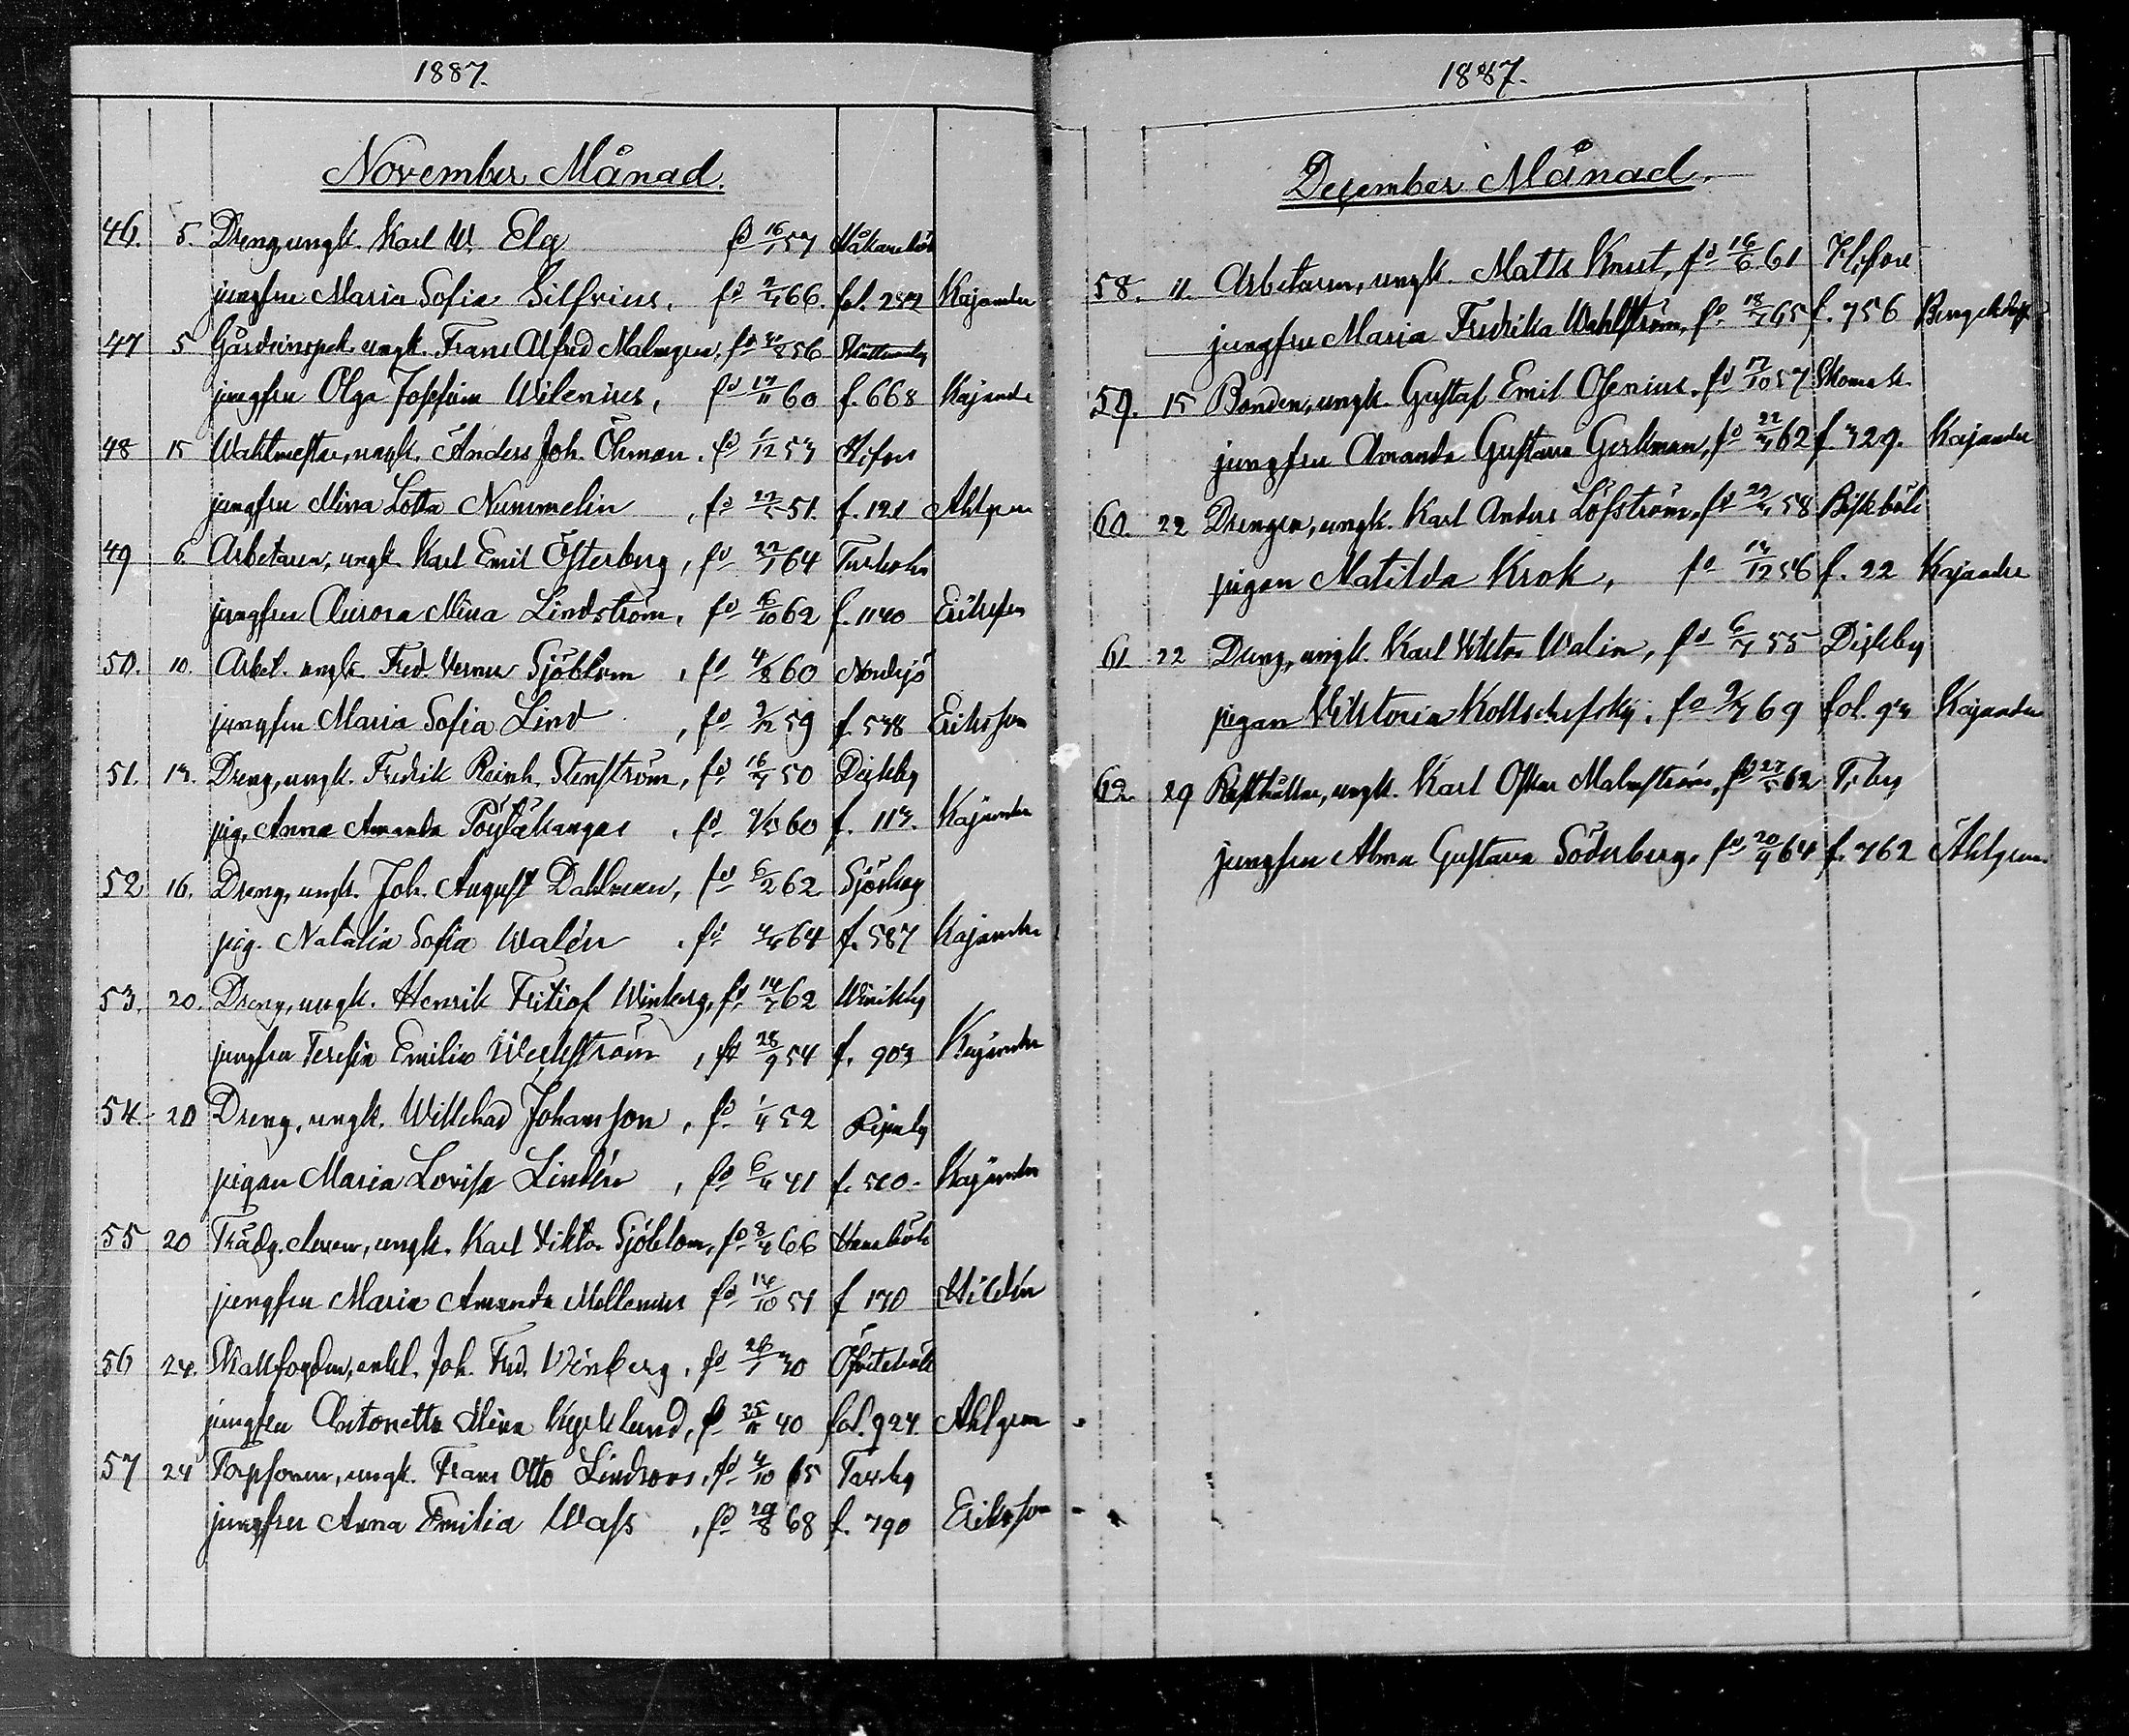 1887.
November Månad.
46. 5. Dreng, ungk. Karl W. Elg fd 16/1 57
jungfru Maria Sofia Silfvius, fd 2/4 66. fol. Kajander
47 5 Gårdsinspek. ungk. Frans Alfred Malmgren, fd 56
jungfru Olga Josefina Wilenius, fd 17/11 60 f. 668 Kajander
48 15 Wahtmestar, ungk. Anders Joh. Öhman. fd 1/12 53
jungfru Mina Lotta Nummelin, fd 51. f. 121 Ahlgren
49 6. Arbetaren, ungk. Karl Emil Österberg, fd 64
jungfru Aurora Mina Lindström, fd 16/10 62 f. 1140 Eriksson
50. 10. Arbet. ungk. Fred. Verner Sjöblom, fd 4/8 60 Nordsjö
jungfru Maria Sofia Lind, fd 59 f. 538 Eriksson
51. 13. Dreng, ungk. Fredrik Reinh. Stenström, fd 50 Dickby
pig. Anna Amanda Pöytäkangas, fd 60 f. 113. Kajander
52 16. Dreng, ungk. Joh. August Dahlman, fd 6/2 62 Sjöskog
pig. Natalia Sofia Walén, fd 64 f. 587 Kajander
53. 20. Dreng, ungk. Henrik Fritiof Winberg, fd 14/7 62 Winikby
jungfru Teresia Emilia Weckström, fd 28/9 54 f. 903 Kajander
54. 20 Dreng, ungk. Willehad Johansson, fd 52
pigan Maria Lovisa Lindén, fd 41 f. 510. Kajander
55 20 Trädg. eleven, ungk. Karl Viktor Sjöblom, fd 8/4 66
jungfru Maria Amanda Mellenius fd 16/10 51 f 170 Hildén
56 24. Skallfogden, enkl. Joh. Fred. Winberg, fd 26/1 30
jungfru Antonetta Mina fd 25/11 40 fol. 924 Ahlgren
57 24 Torpsonen, ungk. Frans Otto Lindroos, fd 4/10 65 Tavsby
jungfru Anna Emilia Wass, fd 29/8 68 f. 790 Eriksson
1887.
December Månad.
58. 11. Arbetaren, ungk. Matts Knut, fd 16/6 61 H:fors
jungfru Maria Fredrika Wahlström, fd 18/7 65 f. 756
59. 15 Bonden, ungk. Gustaf Emil Osenius, fd 17/10 57
jungfru Amanda Gustava Gerkman, fd 62 f. 329. Kajander
60. 22 Drengen, ungk. Karl Anders Löfström, fd 58 Biskböle
pigan Matilda Krok, fd 56 f. 22 Kajander
61. 22 Dreng, ungk. Karl Viktor Walin, fd 55 Dickby
pigan Viktoria Koltschefsky, fd 69 fol. 93 Kajander
62. 29 Rusthållar, ungk. Karl Oskar Malmström, fd 27/5 62
jungfru Alma Gustava Söderberg, fd 20/9 64 f. 762 Ahlgren